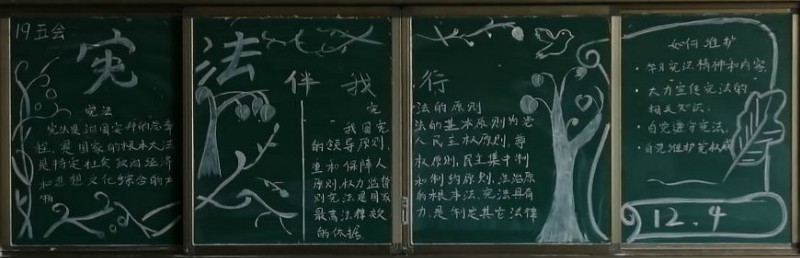 19五会
宪法伴我行
宪法
宪法是治国安邦的总章
程,是国家的根本大法
是特定社会政治经济
和思想文化综合的产
物
宪法的原则
我国宪法的基本原则为党
的领导原则,人民主权原则,尊
重和保障人权原则,民主集中制
原则,权力监督和制约原则,法治原
则宪法是国家的根本法,宪法具有
最高法律效力,是制定其它法律
的依据.
如何维护
·学习宪法精神和内容.
·大力宣传宪法的
相关知识.
·自觉遵守宪法.
·自觉维护宪权威
12.4